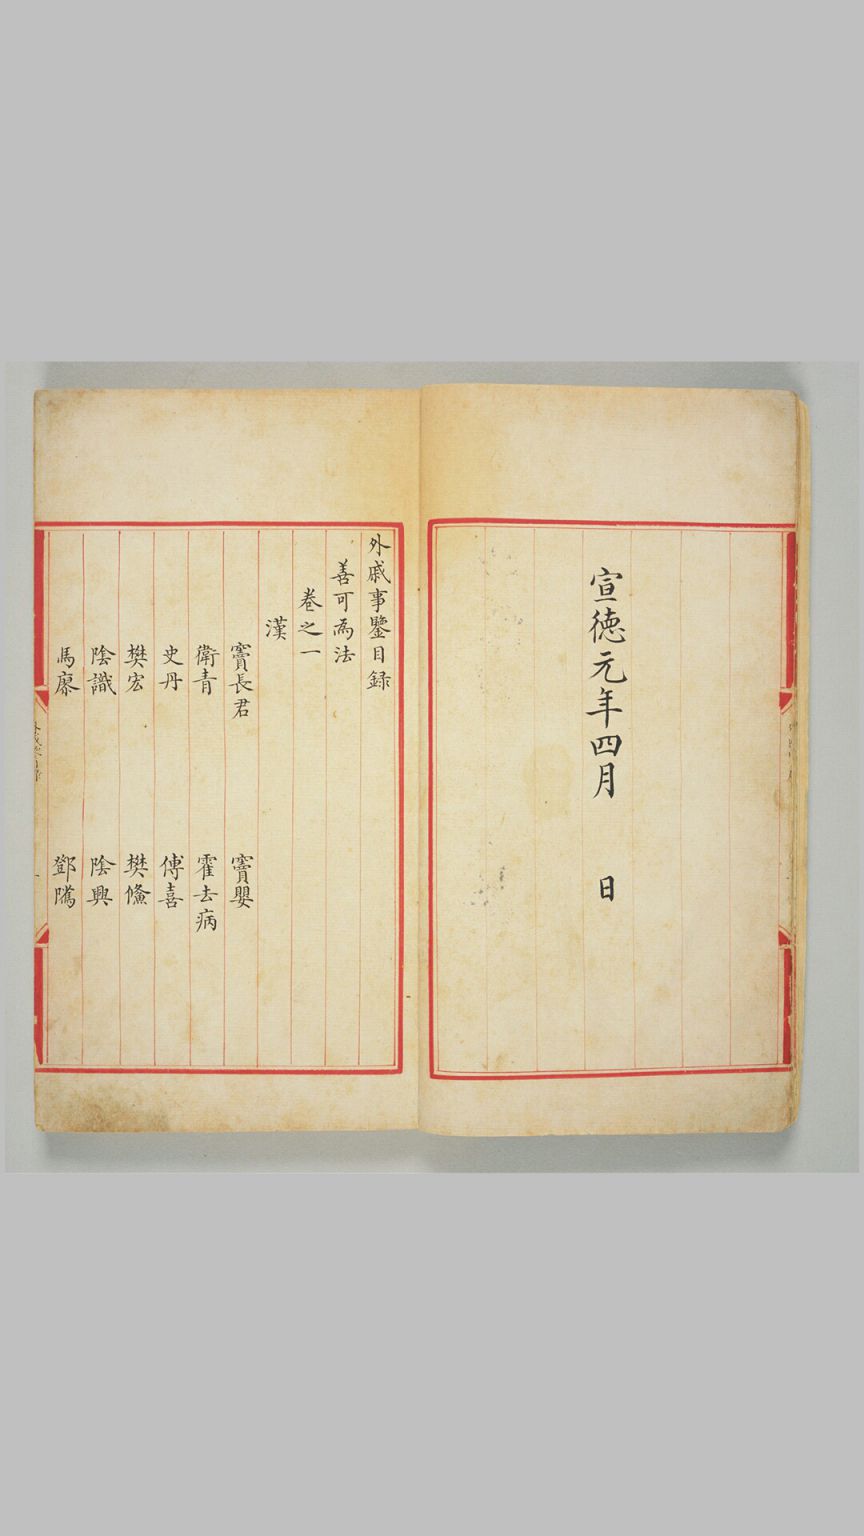 宣徳元年四月　日
外戚事鑒目録
善可為法
卷之一
漢
竇長君　竇嬰
衛青　霍去病
史丹　傅喜
樊宏　樊鯈
陰識　陰興
馬廖　鄧騭